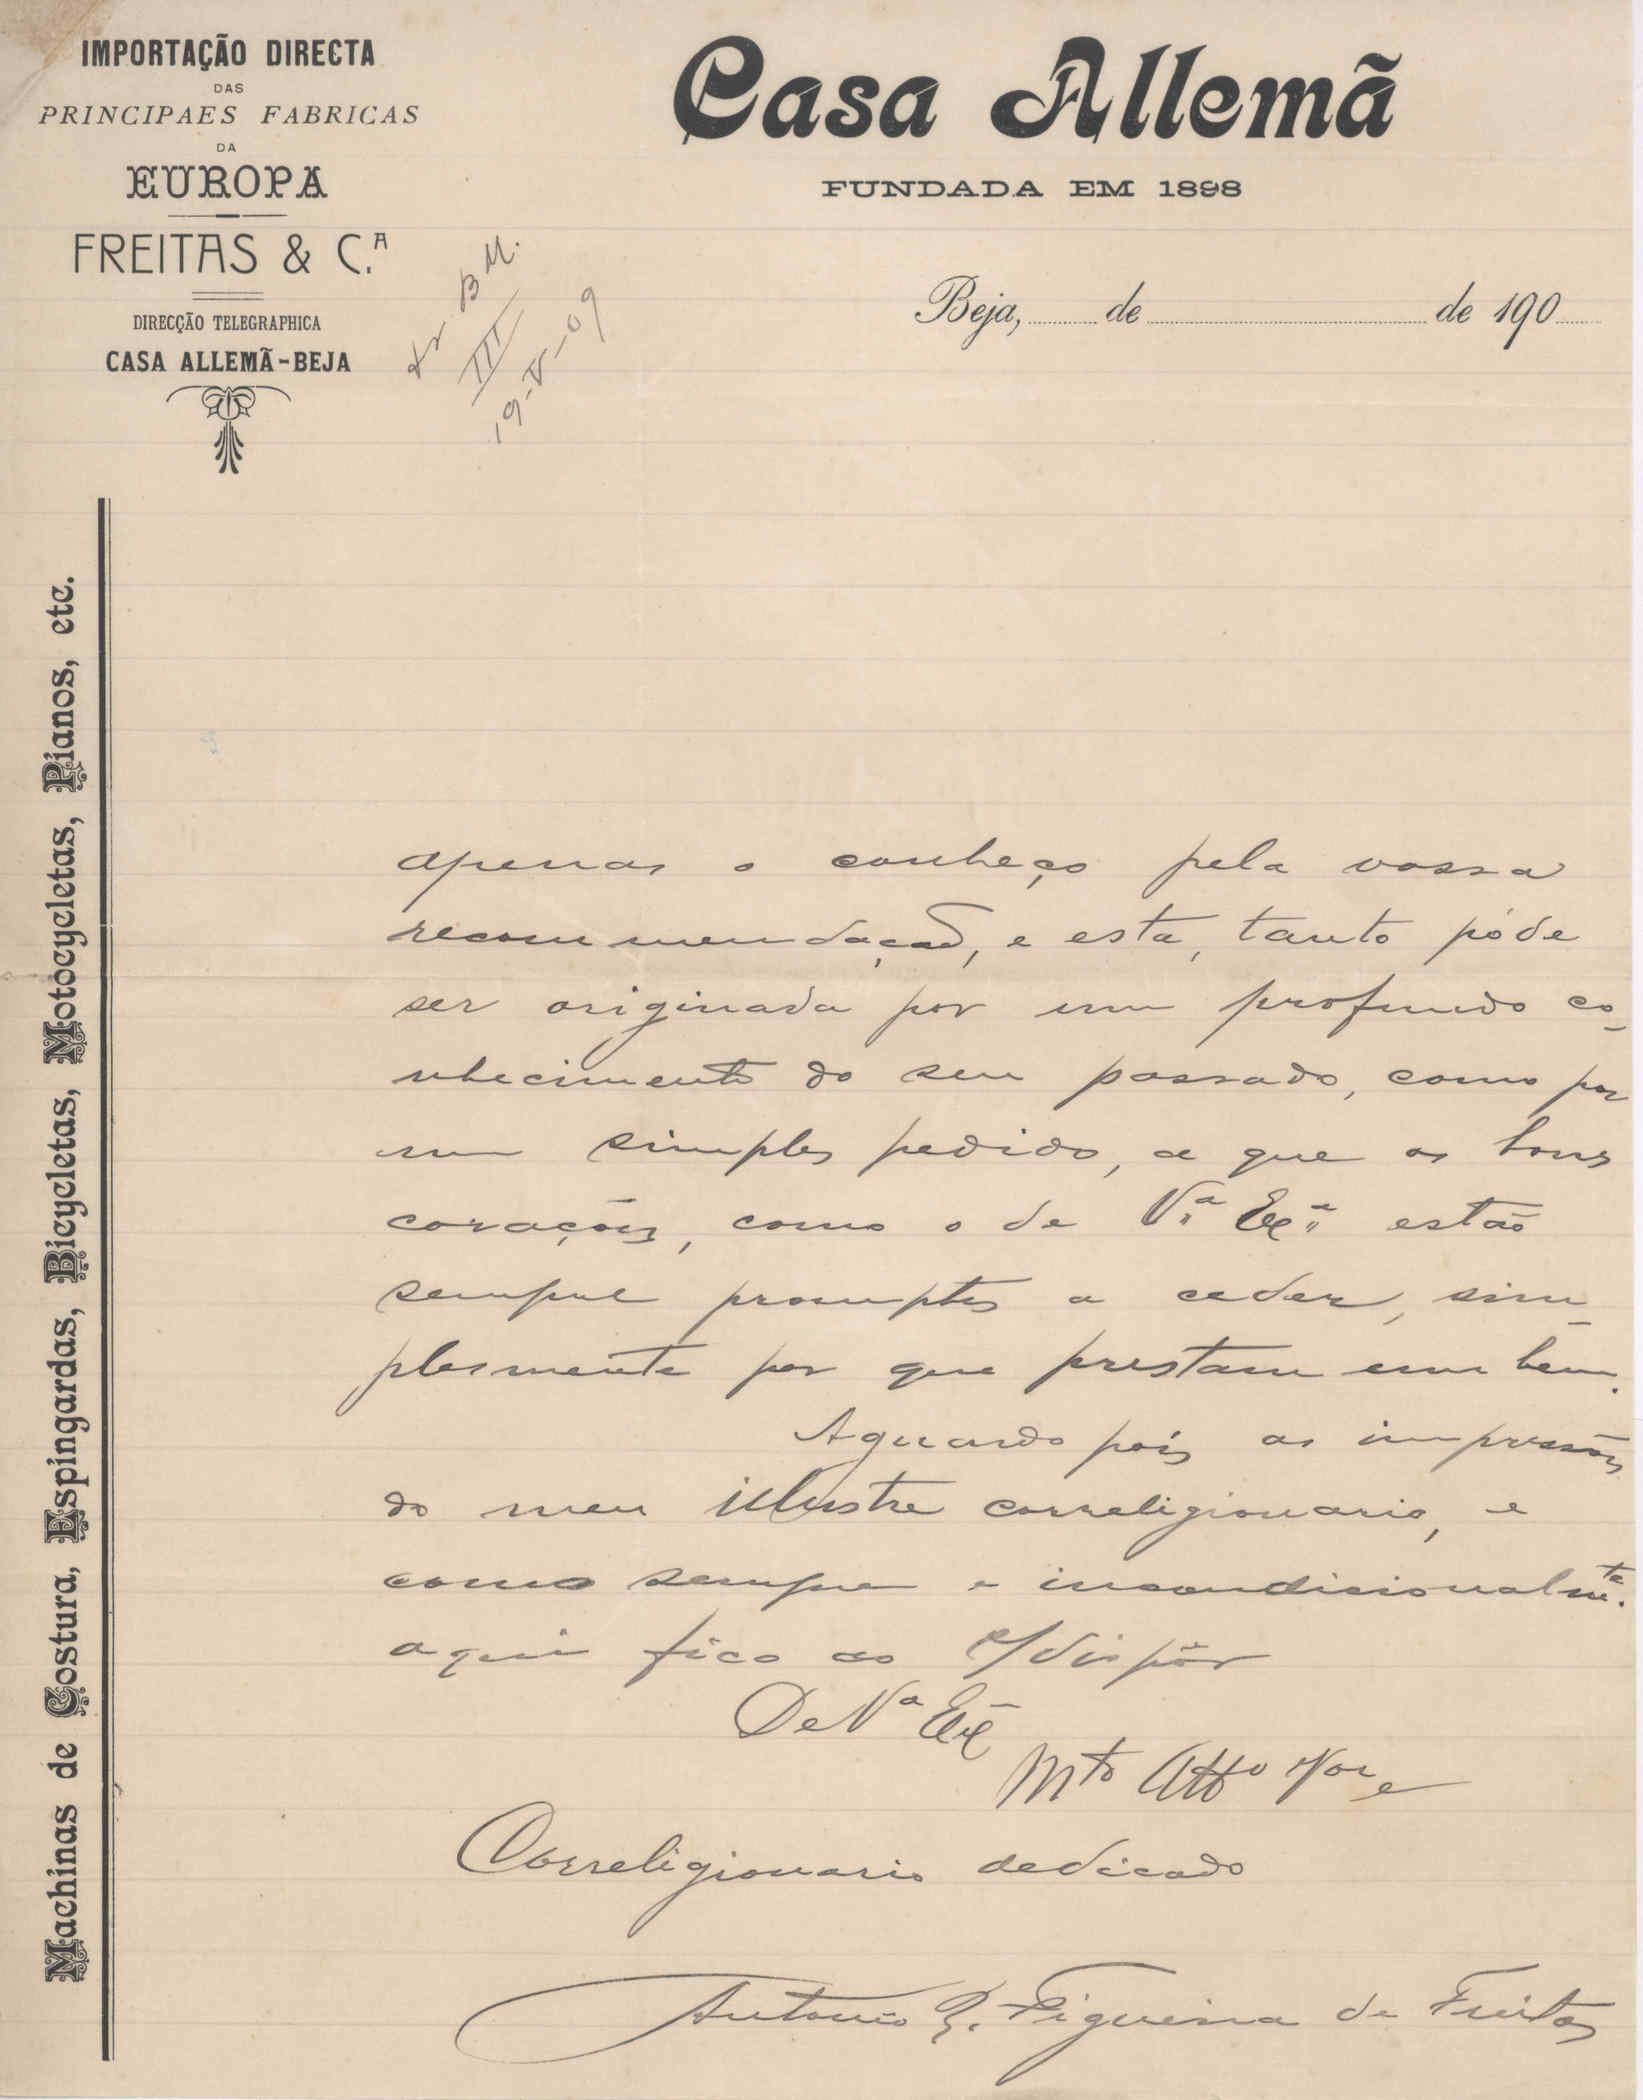 IMPORTAÇÃO DIRECTA
DAS
PRINCIPAES FABRICAS
DA
EUROPA
FREITAS & C.A
DIRECÇÃO TELEGRAPHICA
CASA ALLEMÃ-BEJA
Casa Allemã
FUNDADA EM 1898
Beja, de de 190
Dr. B M.
III
19-V-09
Machinas de Costura, Espingardas, Bicycletas, Motocycletas, Pianos, etc.
apenas o conheço pela vossa
recommendação, e esta, tanto póde
ser originada por um profundo co-
nhecimento do seu passado, como por
um simples pedido, a que os bons
corações, como o de V.ª Ex.ª estão
sempre promptos a ceder, sim-
plesmente por que prestam um bem.
Aguardo pois as impressões
do meu illustre correligionario, e
como sempre e incondicionalmte.
aqui fico ao s/dispôr
De Vª Exª
Mto Atto Vor e
Correligionario dedicado
Antonio Figueira de Freitas